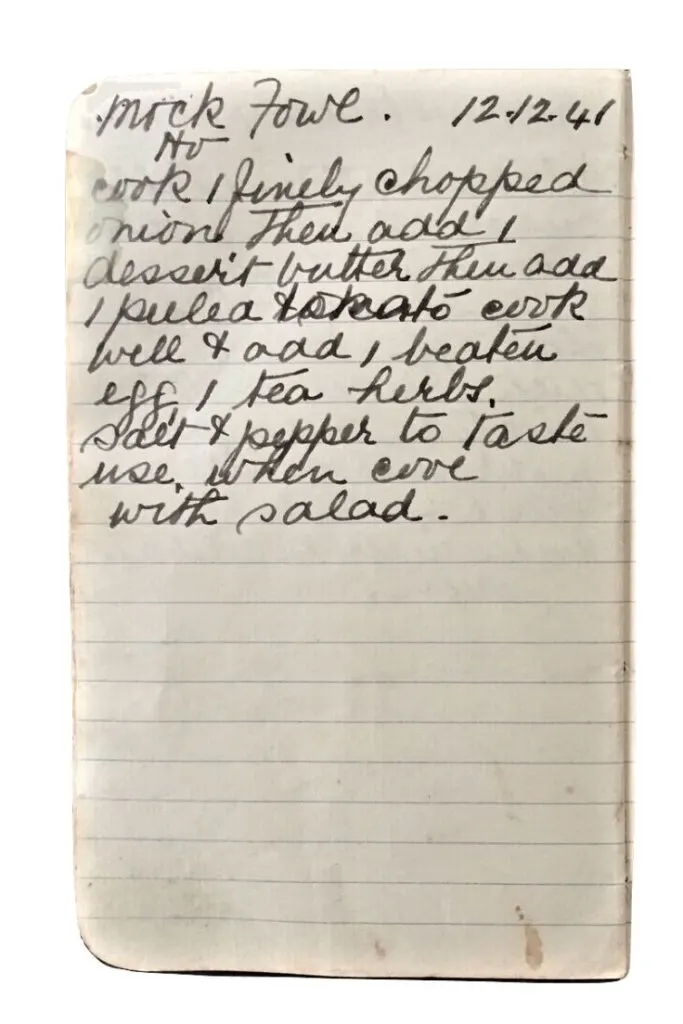 Mock Fowl. 12.12.41
cook 1 finely chopped
onion Then add 1
dessert butter Then add
1 peeled tomato cook
well & add 1 beaten
egg, 1 tea herbs.
salt & pepper to taste
use, when cool
with salad.